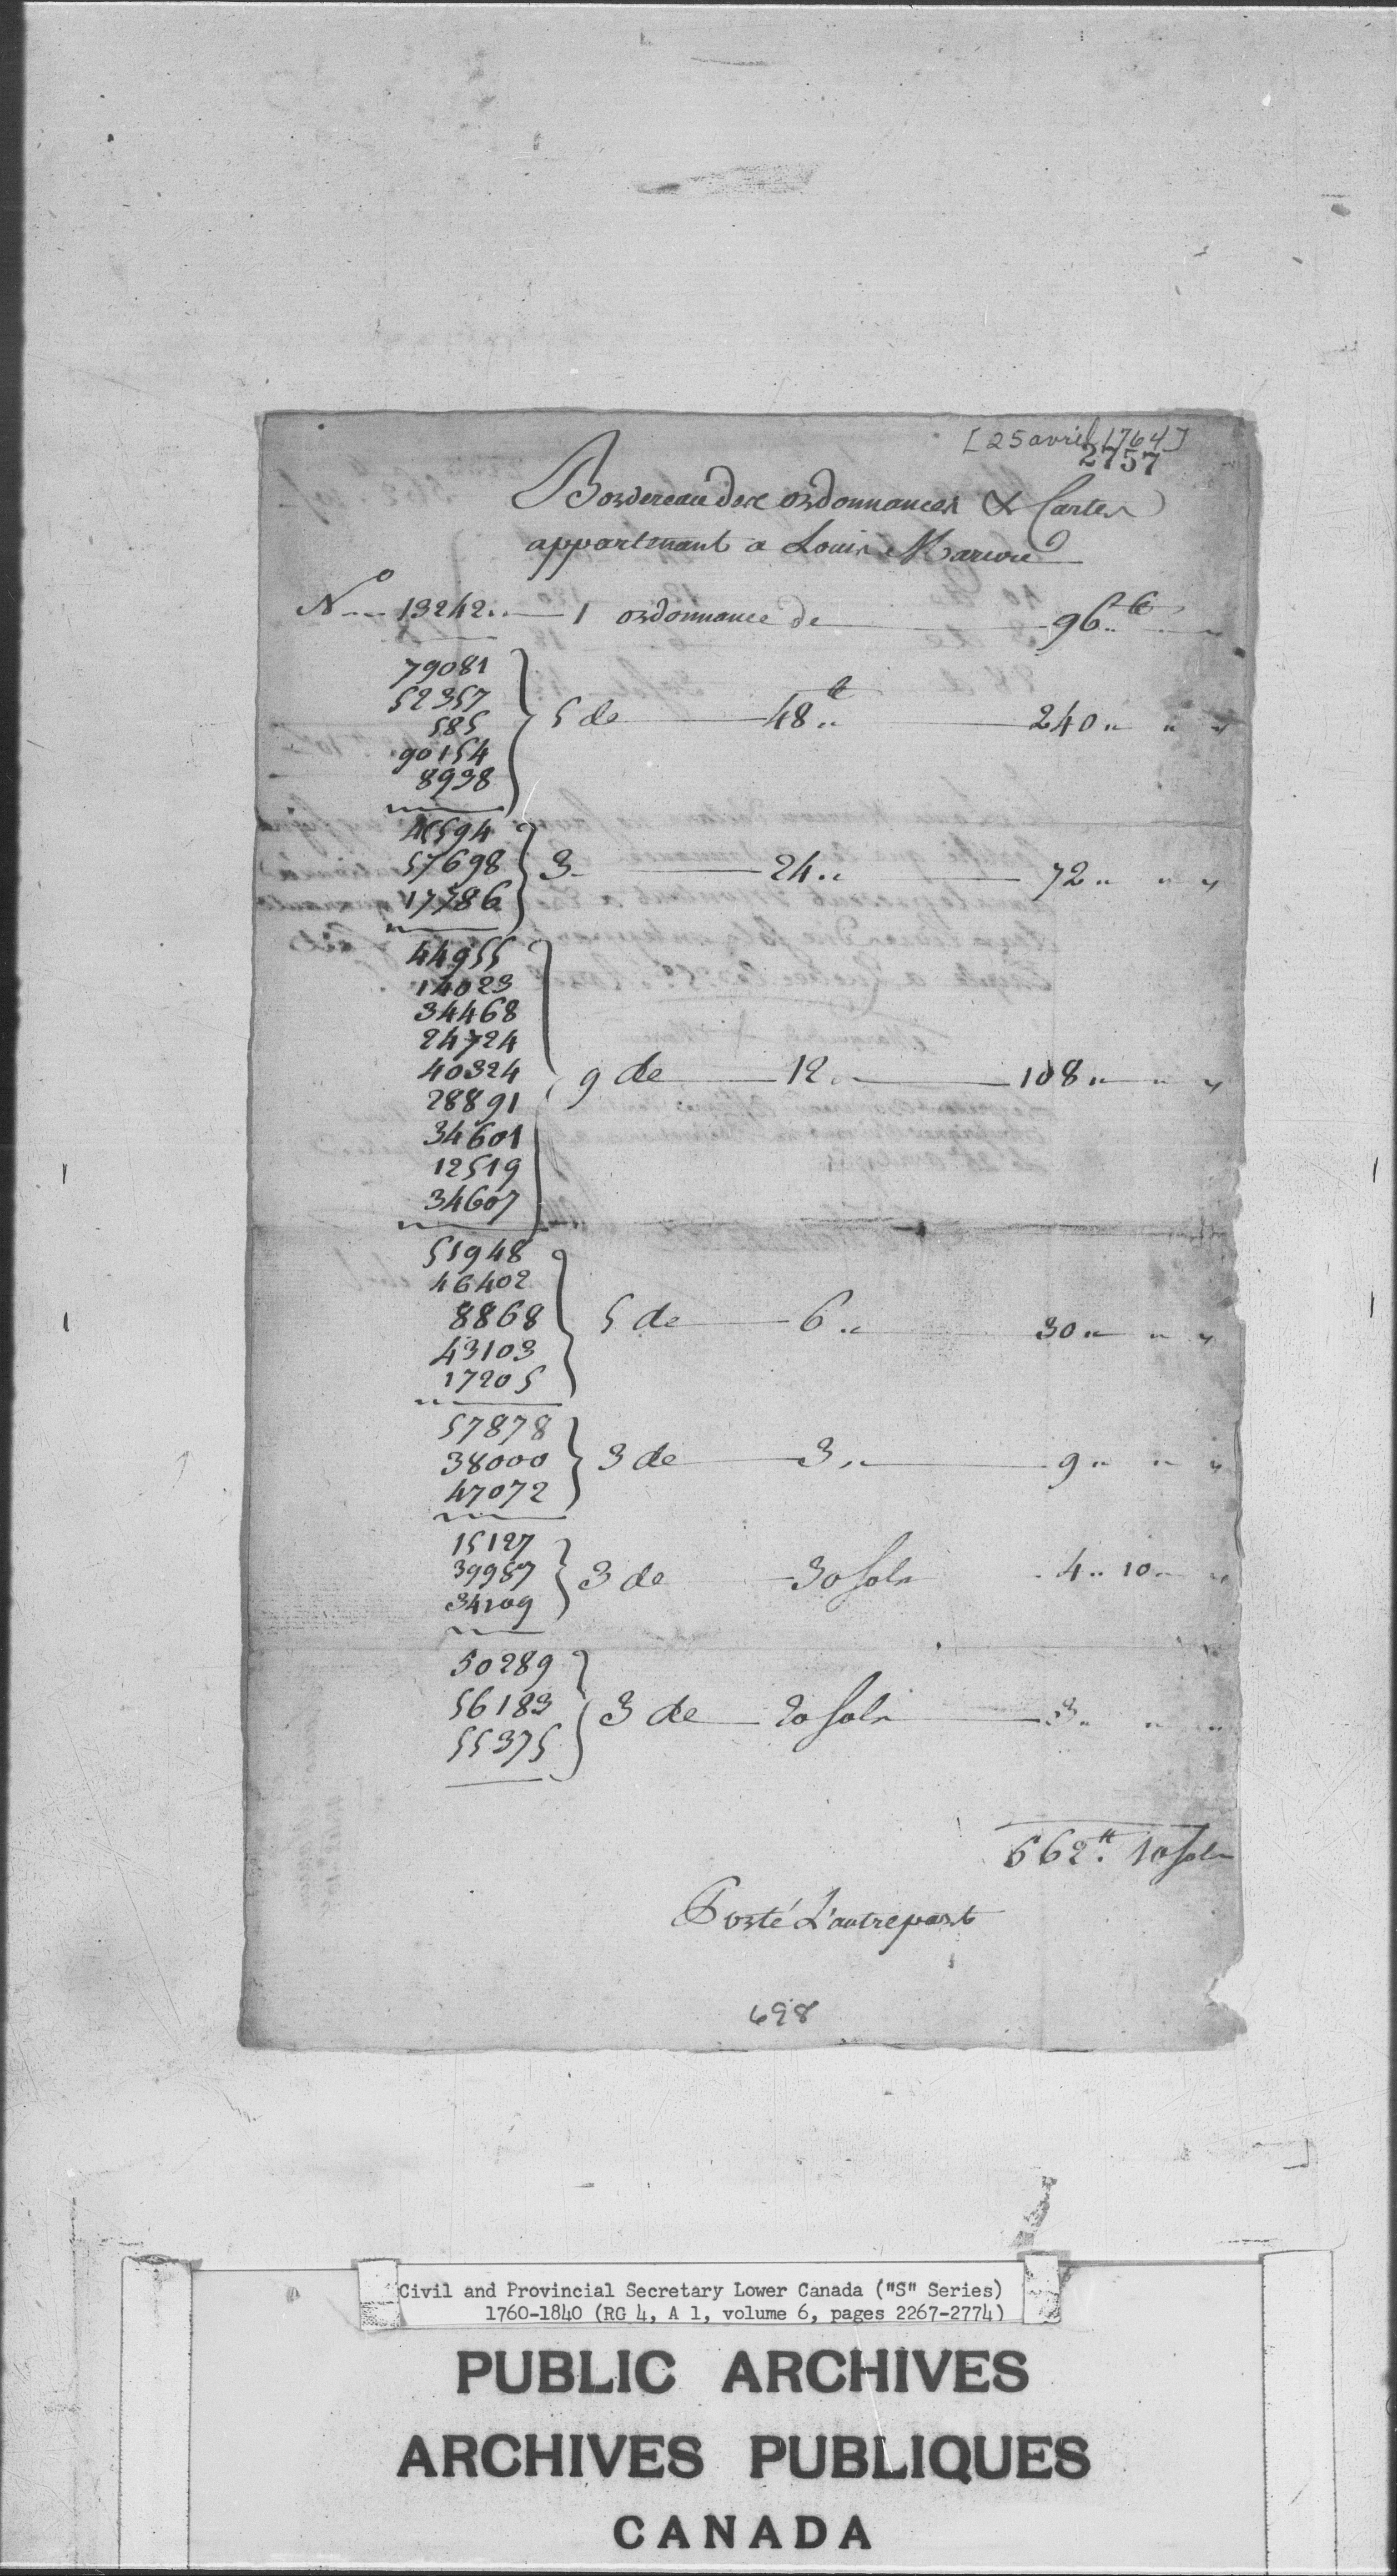 [25 avril 1764]
2757
Bordereau des ordonnances & Cartes
appartenant a Louis Marcou
No 13242 1 ordonnance de 96 ₶
79081
52357
585 5 de 48 ₶ 240 " "
90154
8938
57698 3 24 72 " "
17786
44955
14023
34468
24724
40324 9 de 12 108 " "
28891
34601
12519
34607
51948
46402
8868 5 de 6 30 " "
43103
17205
57878
38000 3 de 3 9 " "
47072
15127
39987 3 de 30 sols 4 10 "
34109
50289
56183 3 de 20 sols 3 " "
55375
662 ₶ 10 sols
Porté L'autrepart
698
Civil and Provincial Secretary Lower Canada ("S" Series)
1760-1840 (RG 4, A 1, volume 6, pages 2267-2774)
PUBLIC ARCHIVES
ARCHIVES PUBLIQUES
CANADA